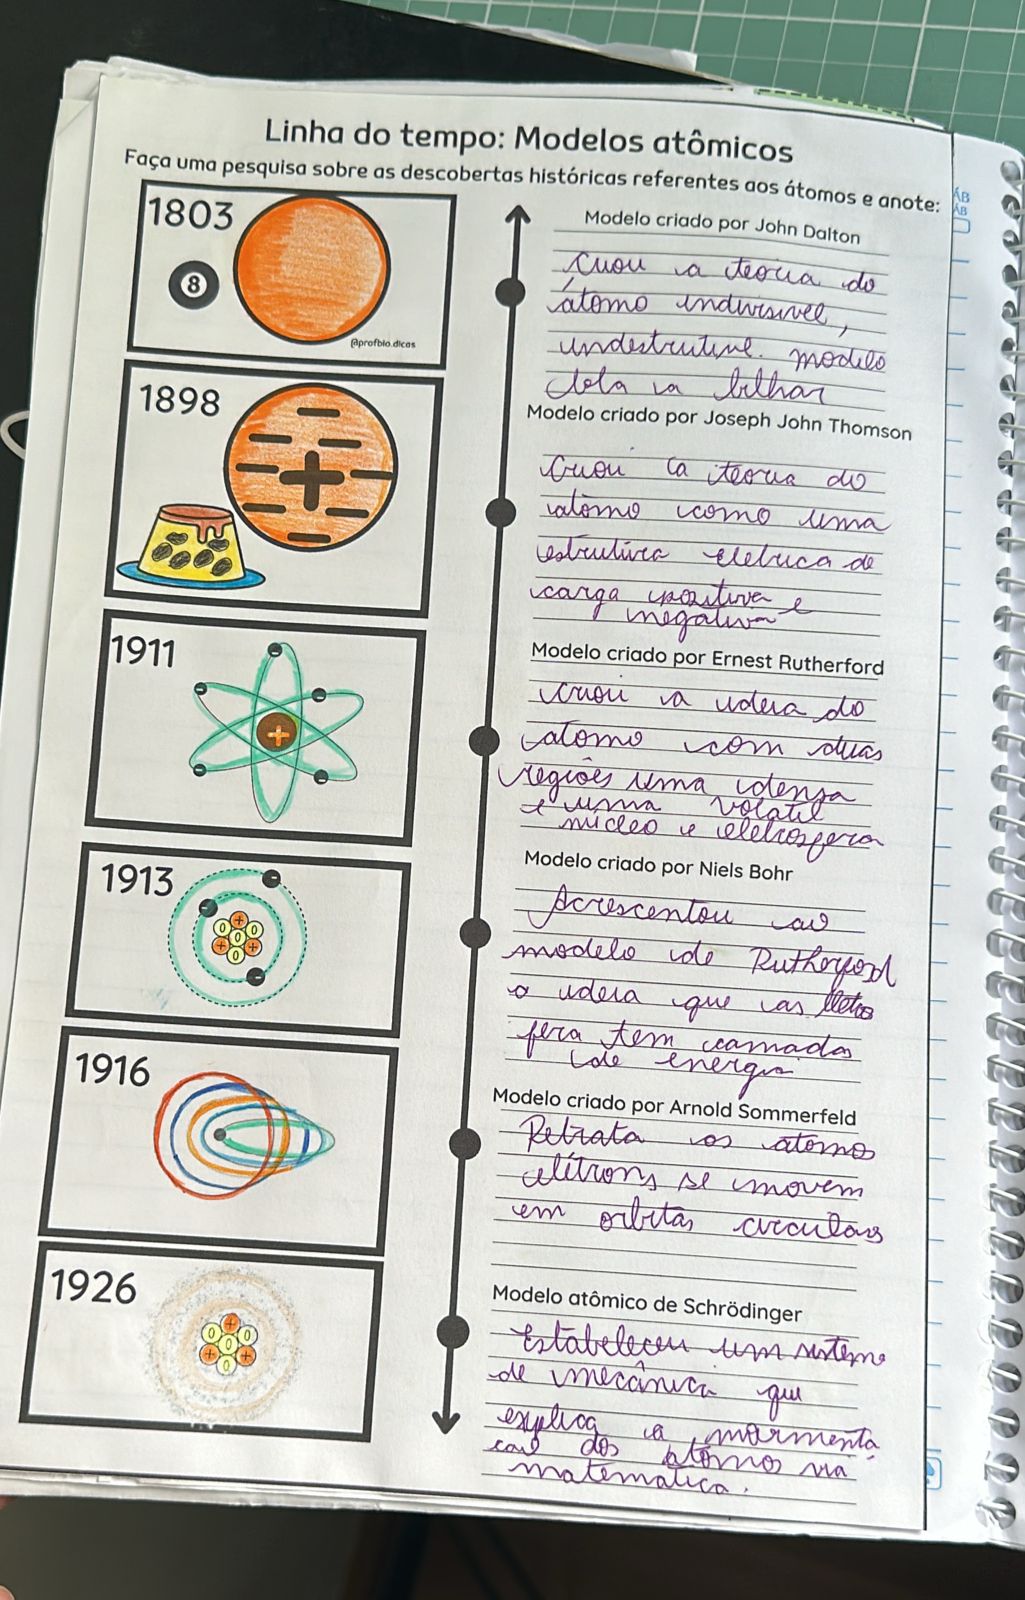 Linha do tempo: Modelos atômicos
Faça uma pesquisa sobre as descobertas históricas referentes aos átomos e anote:
1803
8
@profbio.dicas
Modelo criado por John Dalton
Criou a teoria do
átomo indivisível,
indestrutível. modelo
bola a bilhar
1898
Modelo criado por Joseph John Thomson
Criou a teoria do
atômo como uma
estrutura eletrica de
carga positiva e
negativa
1911
Modelo criado por Ernest Rutherford
criou a ideia do
atomo com duas
regiões uma densa
e uma volatil
núcleo e eletrosfera
1913
Modelo criado por Niels Bohr
Acrescentou ao
modelo de Rutherford
a ideia que as eletros
fera tem camadas
de energia
1916
Modelo criado por Arnold Sommerfeld
Retrata os atomos
elétrons se movem
em orbitas circulares
1926
Modelo atômico de Schrödinger
Estabeleceu um sistema
de mecânica que
explica a
dos átomos na
matematica.
ÁB
ÁB